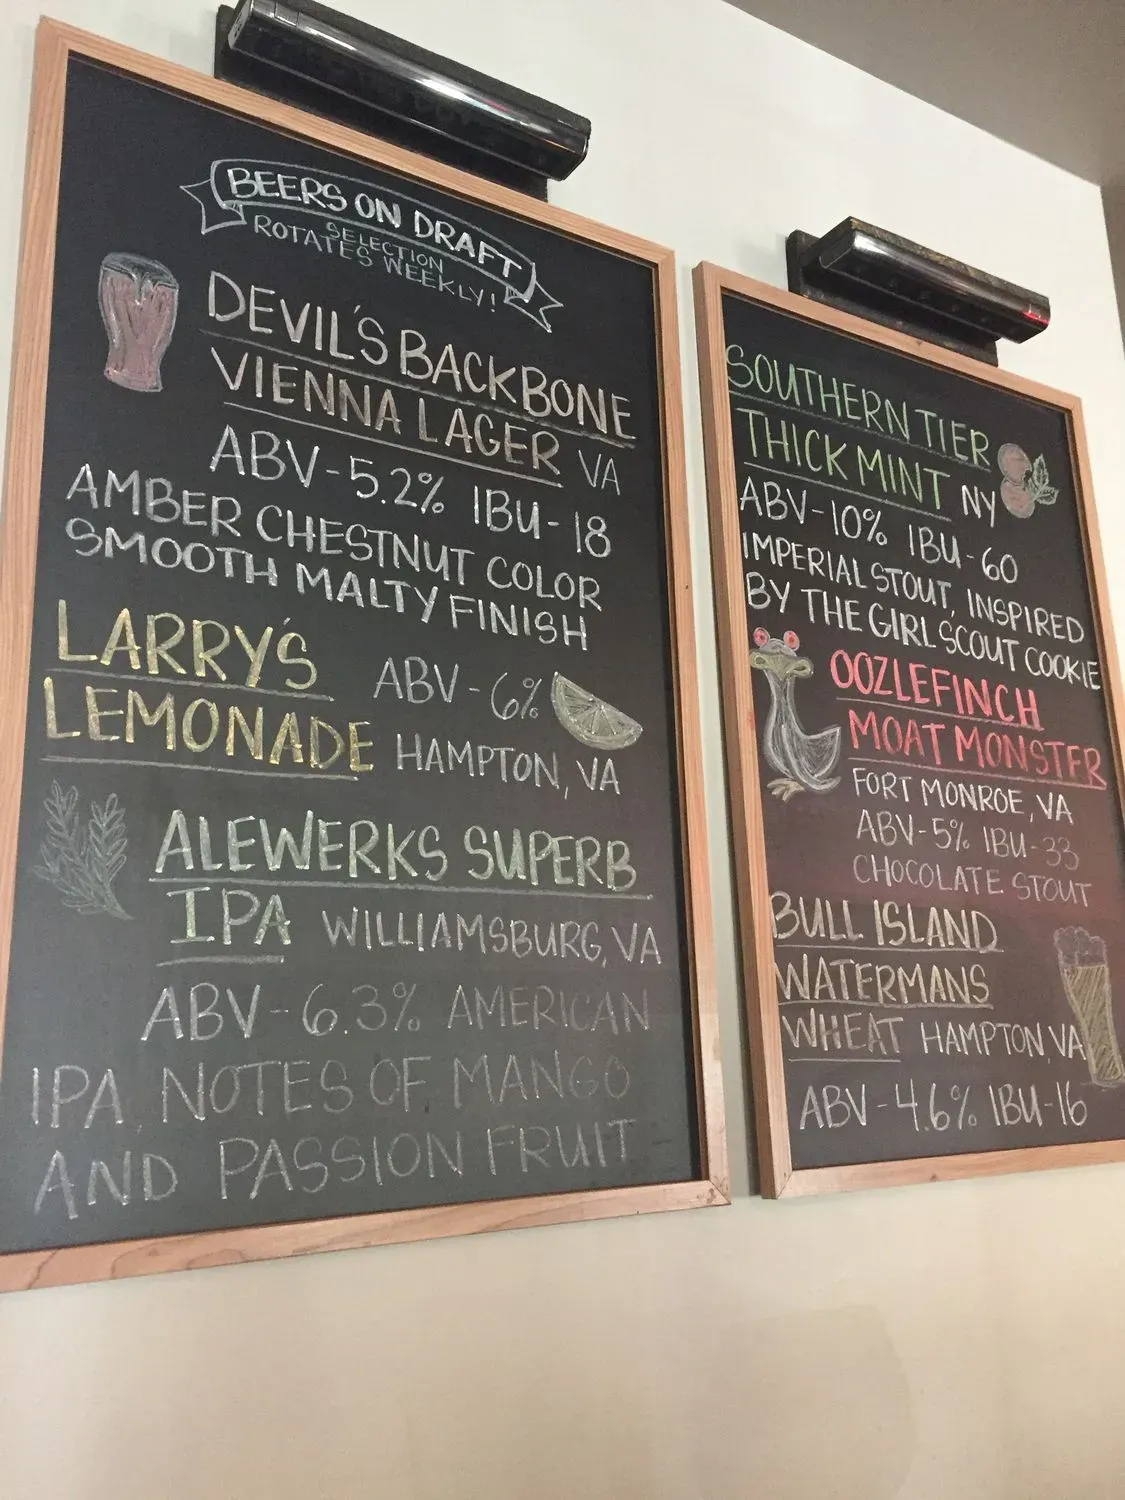 BEERS ON DRAFT
SELECTION
ROTATES WEEKLY!
DEVIL'S BACKBONE
VIENNA LAGER VA
ABV-5.2% IBU-18
AMBER CHESTNUT COLOR
SMOOTH MALTY FINISH
LARRY'S
LEMONADE
ABV-6%
HAMPTON, VA
ALEWERKS SUPERB
IPA WILLIAMSBURG, VA
ABV-6.3% AMERICAN
IPA, NOTES OF MANGO
AND PASSION FRUIT
SOUTHERN TIER
THICK MINT NY
ABV-10% IBU-60
IMPERIAL STOUT, INSPIRED
BY THE GIRL SCOUT COOKIE
OOZLEFINCH
MOAT MONSTER
FORT MONROE, VA
ABV-5% IBU-33
CHOCOLATE STOUT
BULL ISLAND
WATERMANS
WHEAT HAMPTON, VA
ABV-4.6% IBU-16